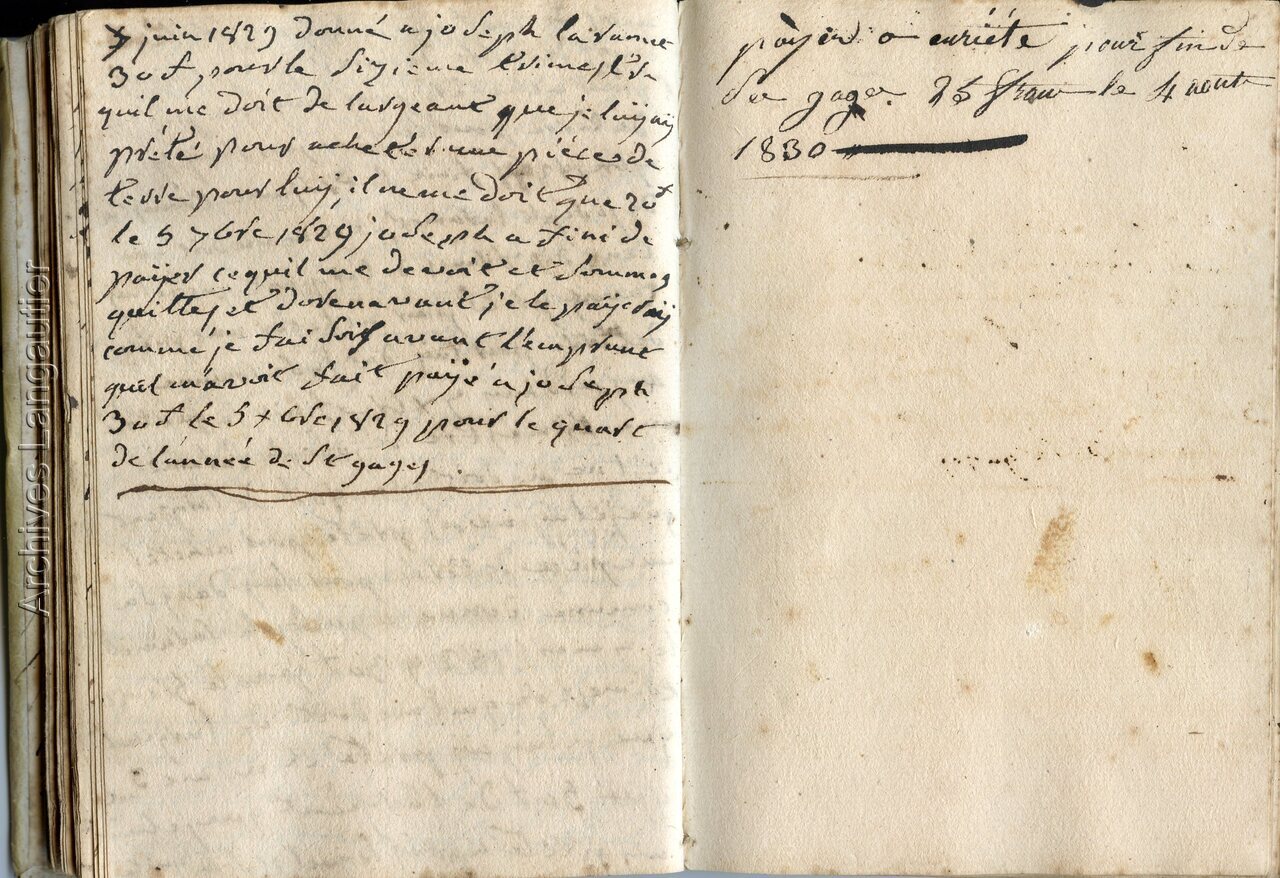 juin 1829 donné a joseph lavanne
30 f pour le sizieme trimestre
quil me doit de largeant que je luy ay
prété pour acheter une piéce de
terre pour luy, il ne me doit que 20 f
le 5 7bre 1829 joseph a fini de
payer ce quil me devoit et sommes
quittes et dorenavant je le payeray
comme je faisois avant l'emprunt
quil m'avoit fait payé a joseph
30 f le 5 xbre 1829 pour le quart
de l'année de st gages.
payer a enriéte pour fin de
se gages 25 fran le 4 aout
1830
Archives Langautier